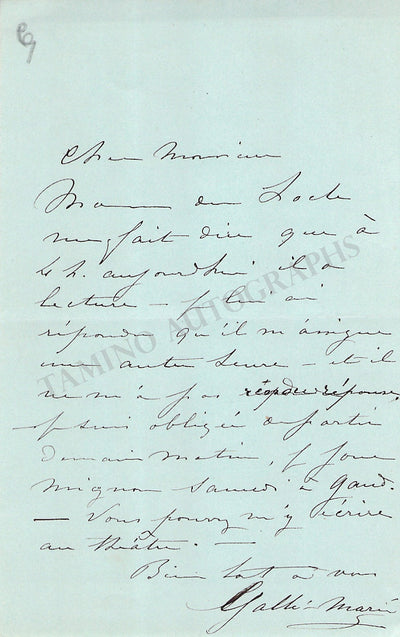 Cher Monsieur
Monsieur du Locle
me fait dire que à
4 h. aujourdhui il a
lecture — je lui ai
répondu qu'il m'assigne
une autre heure — et il
ne m'a pas réponse,
je suis obligée de partir
demain matin, je joue
mignon samedi à Gand.
— Vous pouvez m'y écrire
au théâtre. —
Bien tot à vous
Galli-Marié
TAMINO AUTOGRAPHS